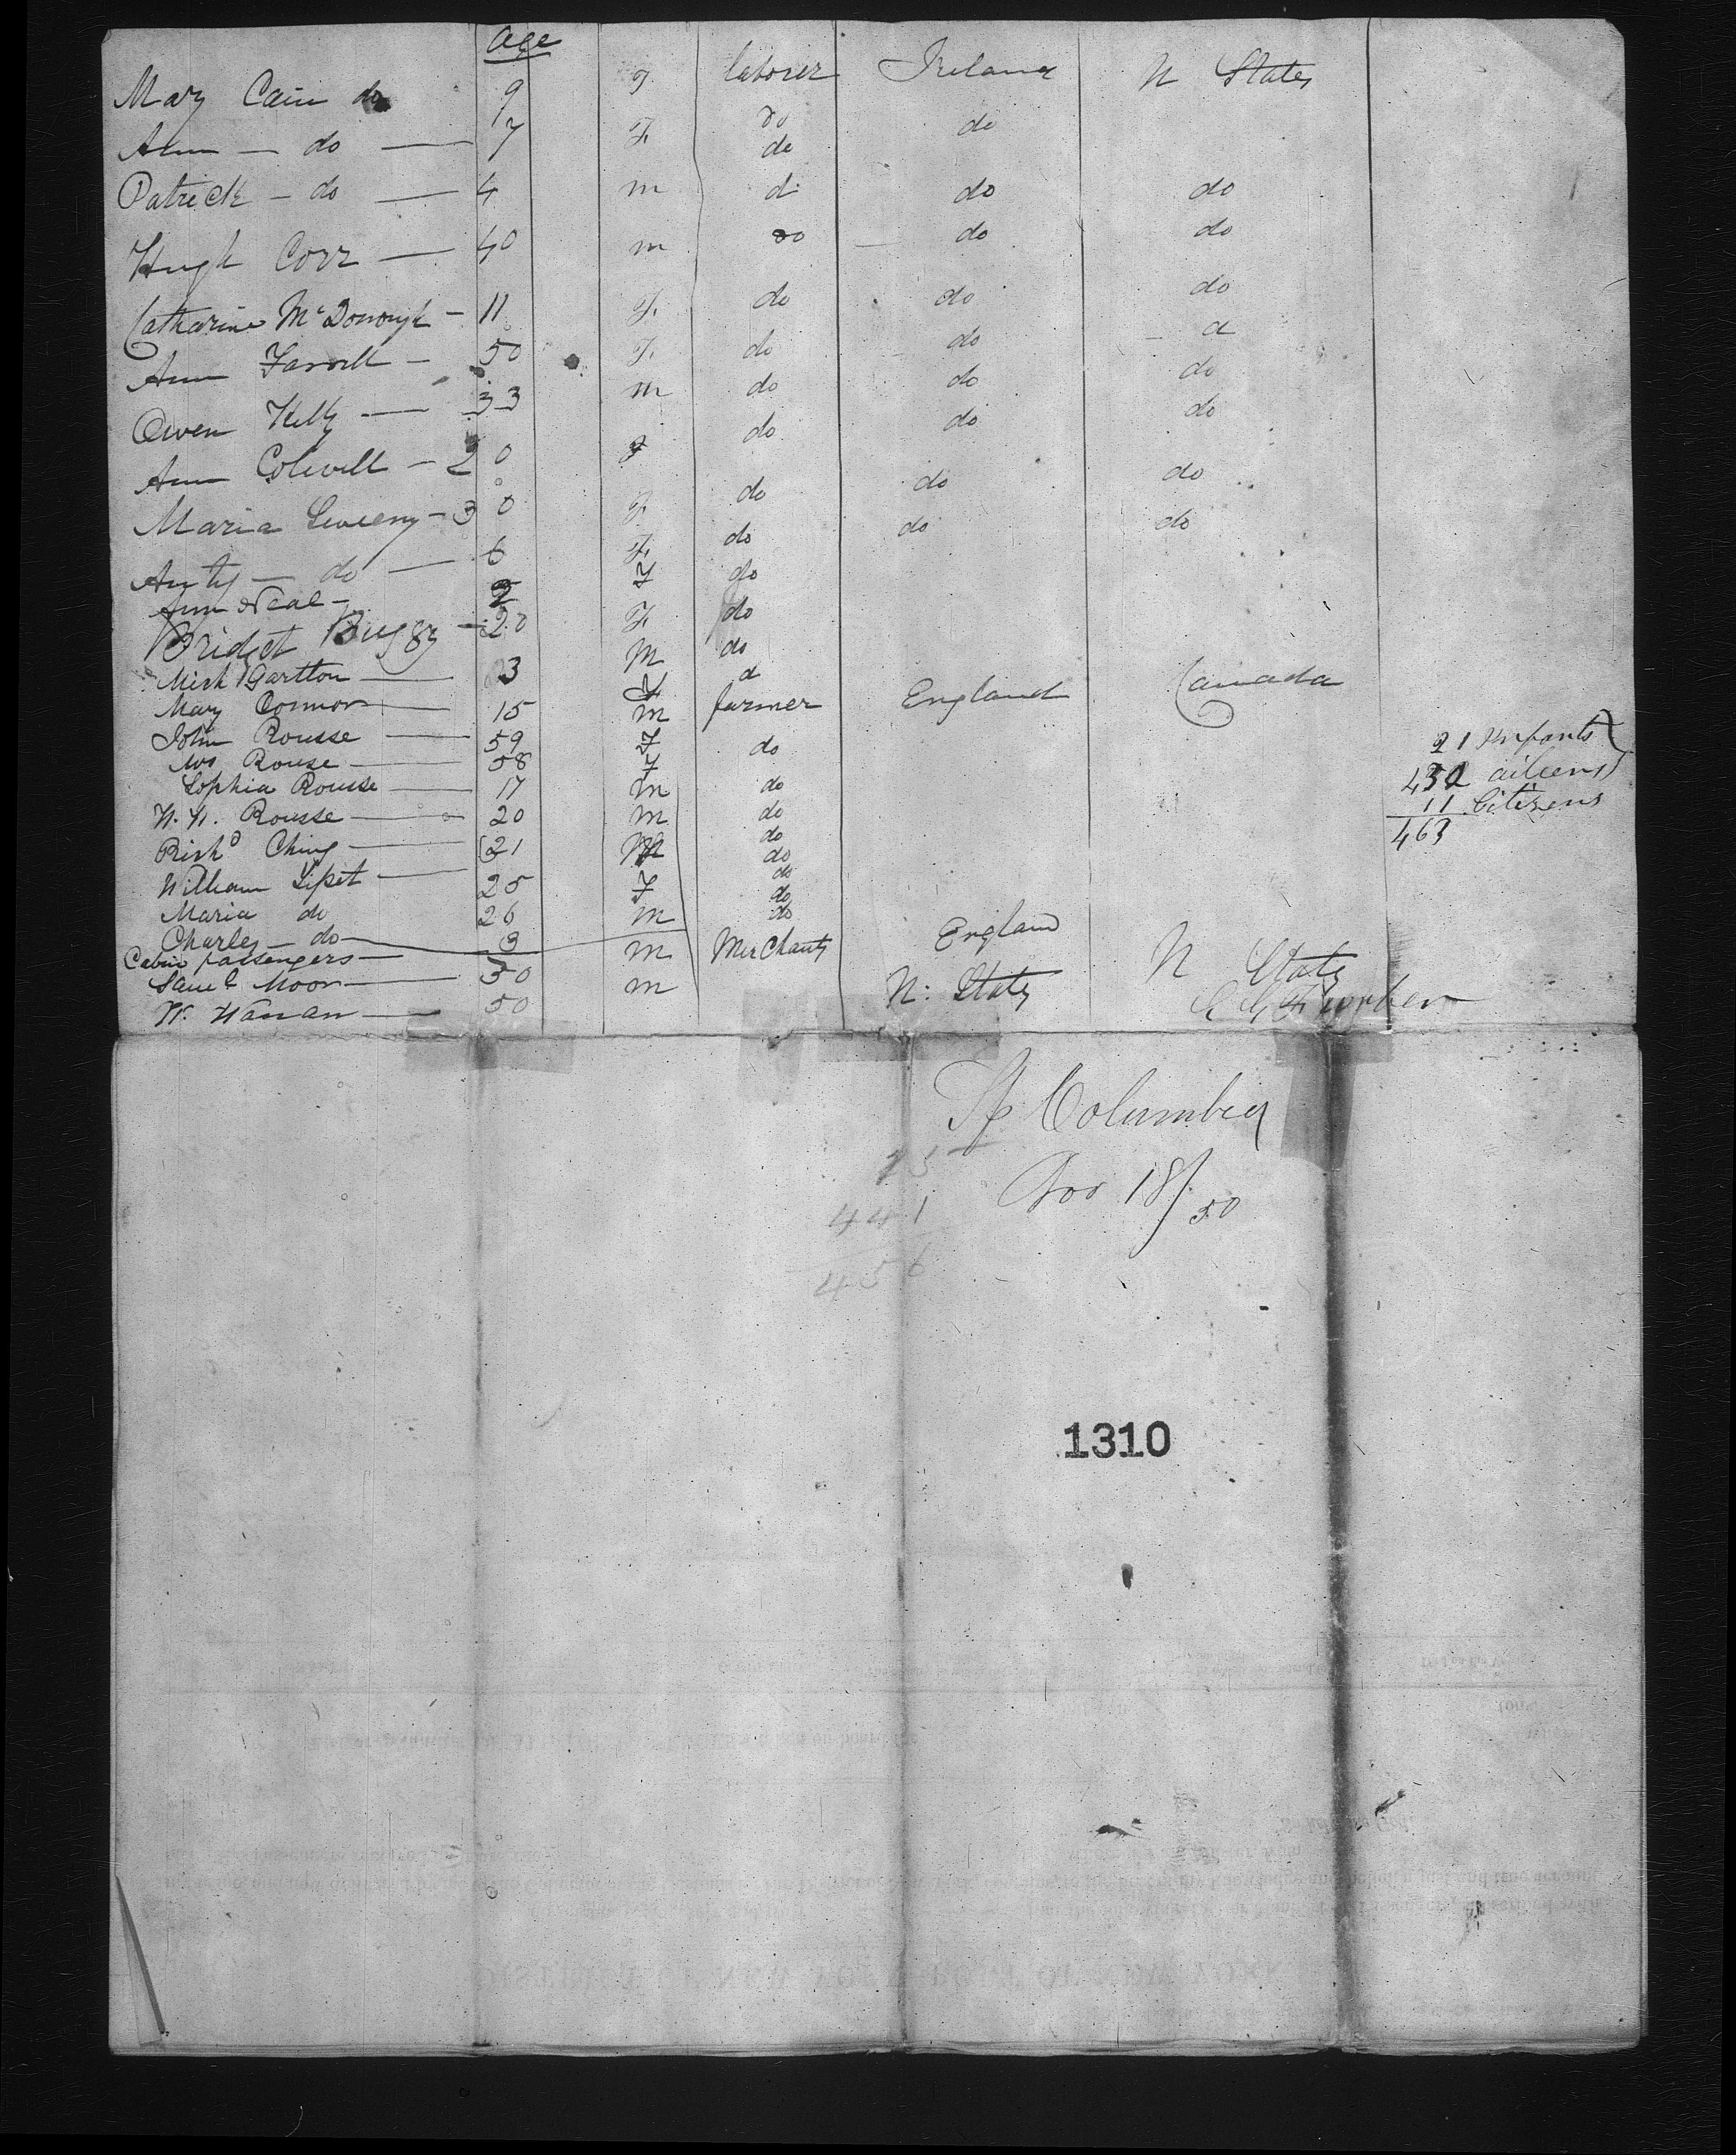 Age
Mary Cain do 9 F laborer Ireland U States
Ann — do — 7 F. do do
do
Patrick — do — 4 m d do do
Hugh Corr — 40 m do do do
Catharine McDonough — 11 F. do do do
Ann Farrell — 50 F. do do d
Owen Kelly — 33 m do do do
Ann Colwell — 20 F do do do
Maria Sweeny — 30 F do do do
Anty — do — 6 F. do do do
Ann Neal — 2 F do
Bridget Buggy — 20 F. do
Mich Gartton — 3 M do
Mary Connor — 15 F d
John Rousse — 59 m farmer England Canada
Mrs Rouse — 58 F do
Sophia Rousse — 17 F do
W. H. Rousse — 20 m do
Richd Ching — 21 m do
William Lipet — 25 M do
Maria do 26 F do
Charles — do — 3 m do
Cabin passengers —
Saml Moor — 50 m Merchants England U States
W. Hanan — 50 m U: States
21 Infants
432 ailiens
11 Citizens
463
Sp Columbia
Nov 18/50
15
441
456
1310